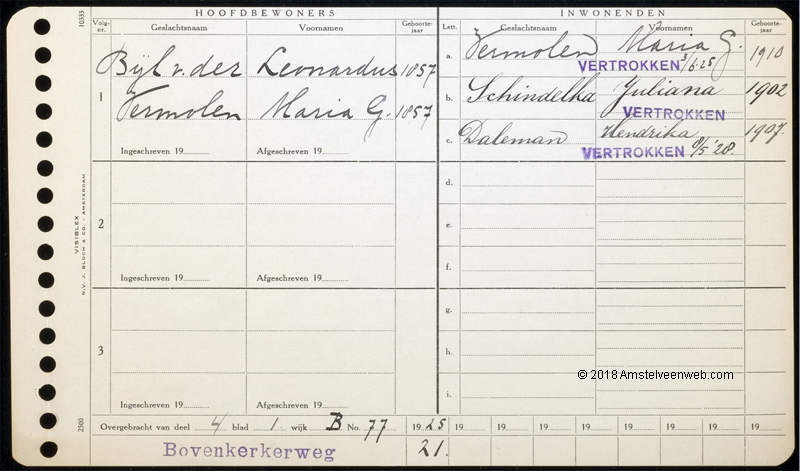 HOOFDBEWONERS
INWONENDEN
Volg-nr. Geslachtsnaam Voornamen Geboorte-jaar
Lett. Geslachtsnaam Voornamen Geboorte-jaar
1 Bijl v. der Leonardus 1857
Vermolen Maria G. 1857
Ingeschreven 19 Afgeschreven 19
2
Ingeschreven 19 Afgeschreven 19
3
Ingeschreven 19 Afgeschreven 19
a. Vermolen Maria G. 1910
VERTROKKEN 3/6.25
b. Schindelka Juliana 1902
VERTROKKEN
c. Daleman Hendrika 1907.
VERTROKKEN 9/5 '28.
d.
e.
f.
g.
h.
i.
© 2018 Amstelveenweb.com
Overgebracht van deel 4 blad 1. wijk B No. 77 1925 19 19 19 19 19 19 19 19
Bovenkerkerweg 21.
10333
VISIBLEX
N.V. J. BLOCH & CO. - AMSTERDAM
2500